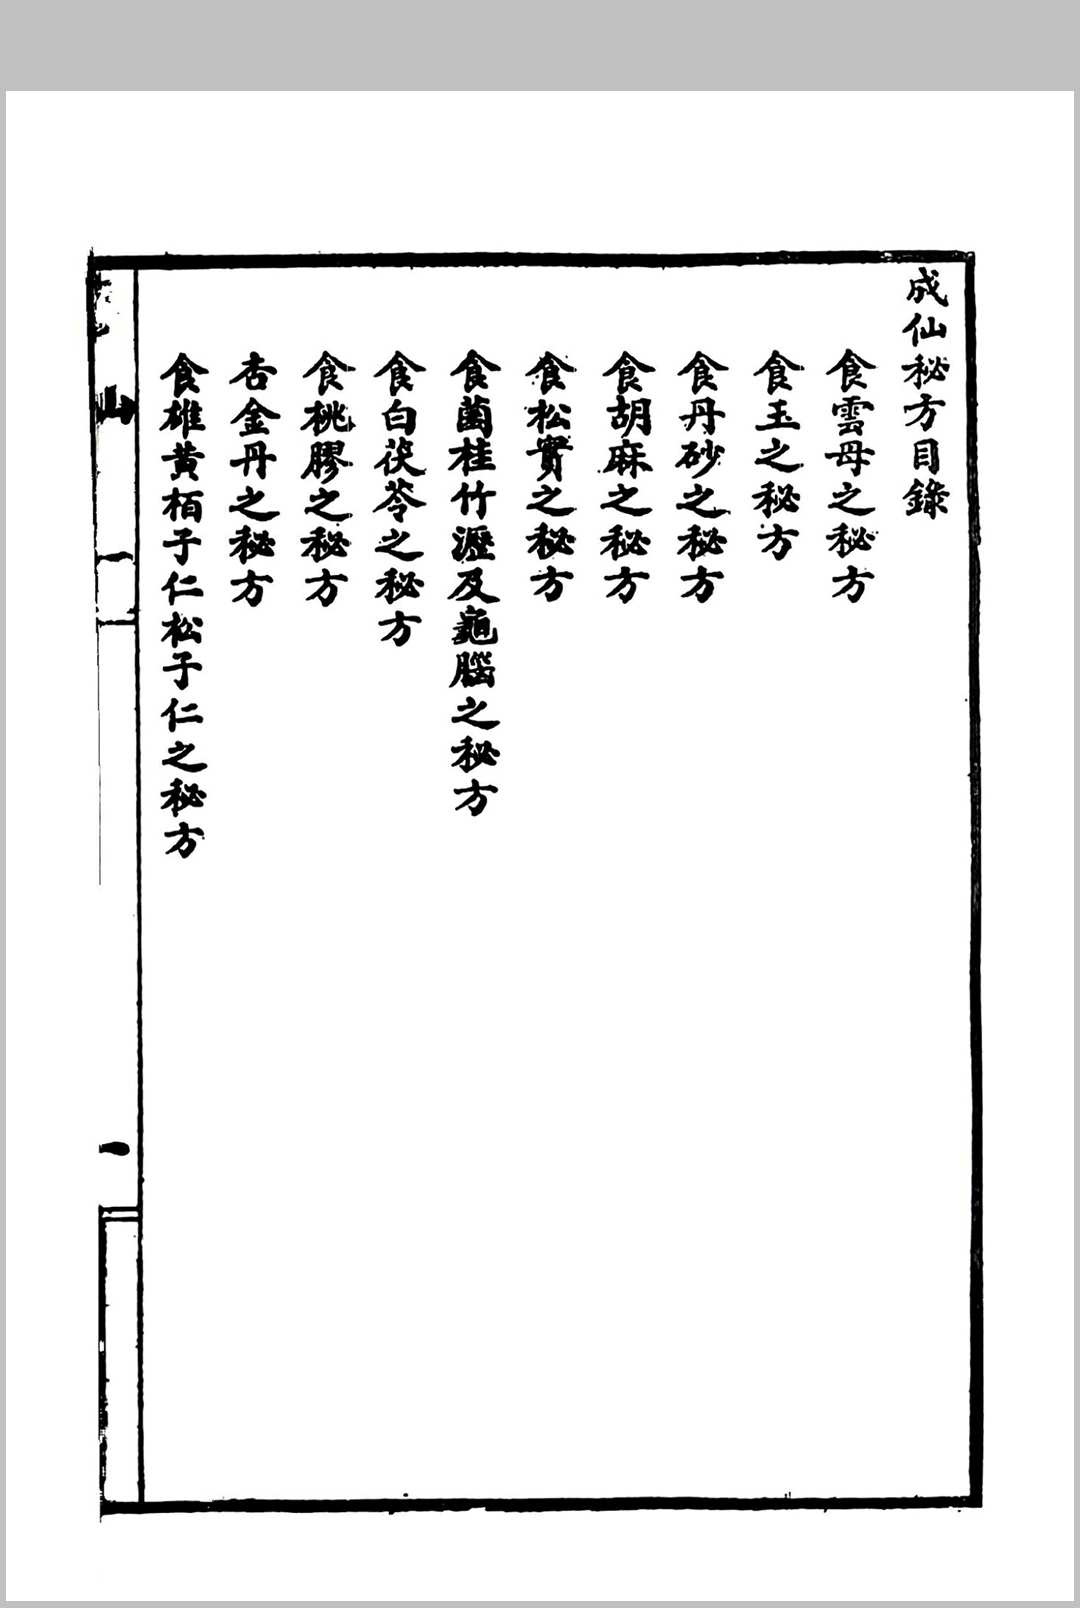 成仙秘方目錄
食雲母之秘方
食玉之秘方
食丹砂之秘方
食胡麻之秘方
食松實之秘方
食菌桂竹瀝及龜腦之秘方
食白茯苓之秘方
食桃膠之秘方
杏金丹之秘方
食雄黃栢子仁松子仁之秘方